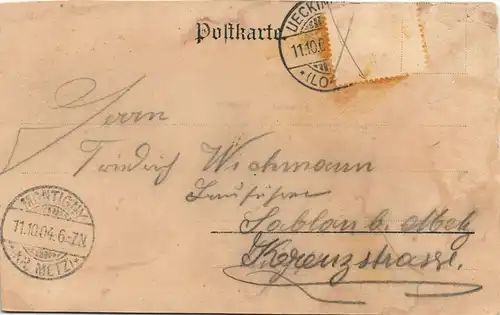 Postkarte
UECKIN
11.10.0
*(LO
Herrn
Friedrich Wichmann
Sablon b. Metz
Kreuzstrasse.
MONTIGNY
11.10.04.6-7N.
*(KR. METZ)*